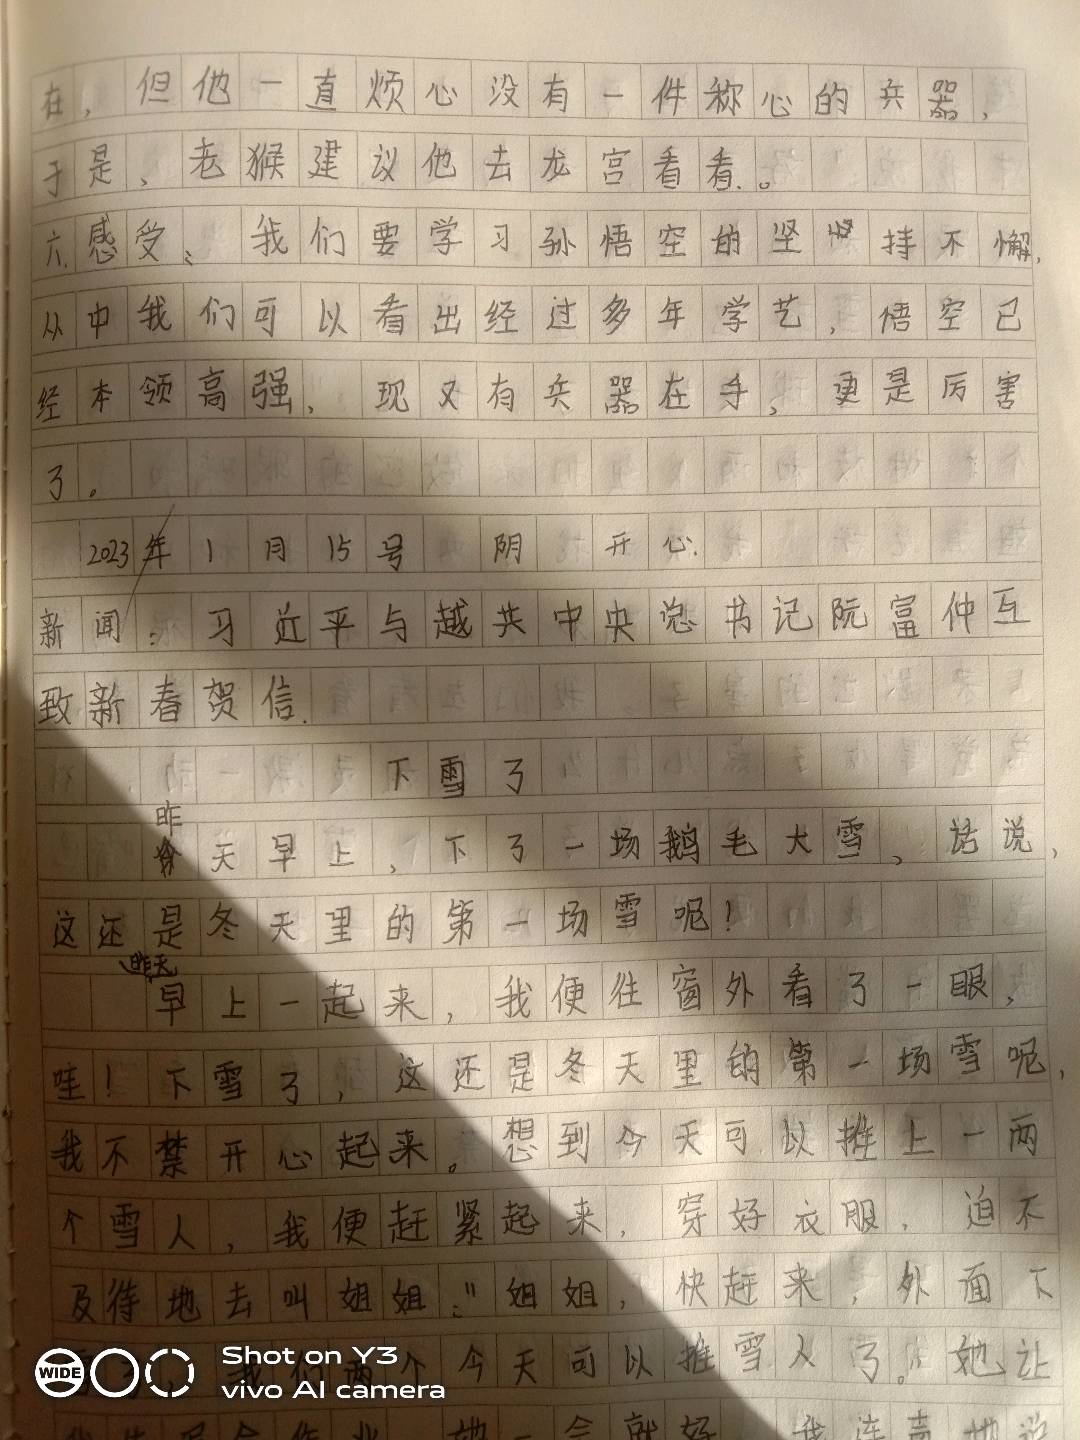 在，但他一直烦心没有一件称心的兵器，
于是，老猴建议他去龙宫看看。
六.感受：我们要学习孙悟空的坚持不懈，
从中我们可以看出经过多年学艺，悟空已
经本领高强，现又有兵器在手，更是厉害
了。
2023年1月15号 阴 开心.
新闻：习近平与越共中央总书记阮富仲互
致新春贺信.
下雪了
昨天早上，下了一场鹅毛大雪，话说，
这还是冬天里的第一场雪呢！
昨天早上一起来，我便往窗外看了一眼，
哇！下雪了，这还是冬天里的第一场雪呢，
我不禁开心起来。想到今天可以堆上一两
个雪人，我便赶紧起来，穿好衣服，迫不
及待地去叫姐姐：“姐姐，快赶来，外面下
我们两个今天可以堆雪人了。她让
她一会就好 我连声地说
WIDE
Shot on Y3
vivo AI camera